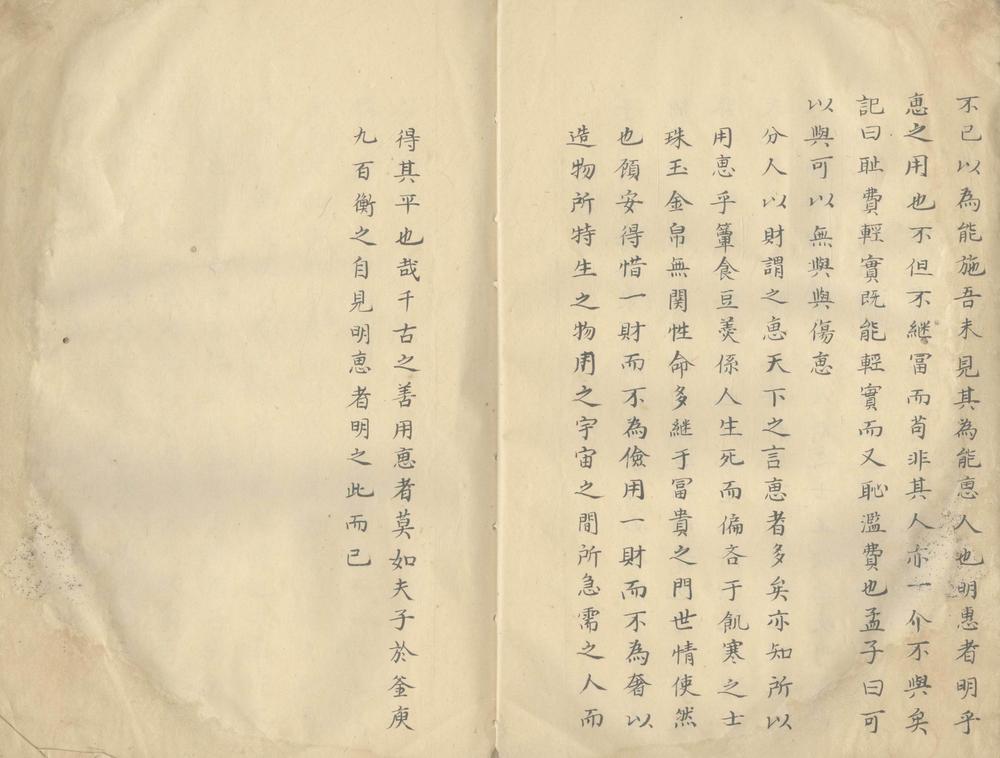 不已以為能施吾未見其為能恵人也明惠者明乎
恵之用也不但不継冨而苟非其人亦一介不與矣
記曰耻費輕實既能輕實而又恥濫費也孟子曰可
以與可以無與與傷恵
分人以財謂之恵天下之言恵者多矣亦知所以
用恵乎簞食豆羹係人生死而偏吝于飢寒之士
珠玉金帛無関性命多継于冨貴之門世情使然
也頋安得惜一財而不為儉用一財而不為奢以
造物所特生之物用之宇宙之間所急需之人而
得其平也哉千古之善用恵者莫如夫子於釜庾
九百衡之自見明恵者明之此而已